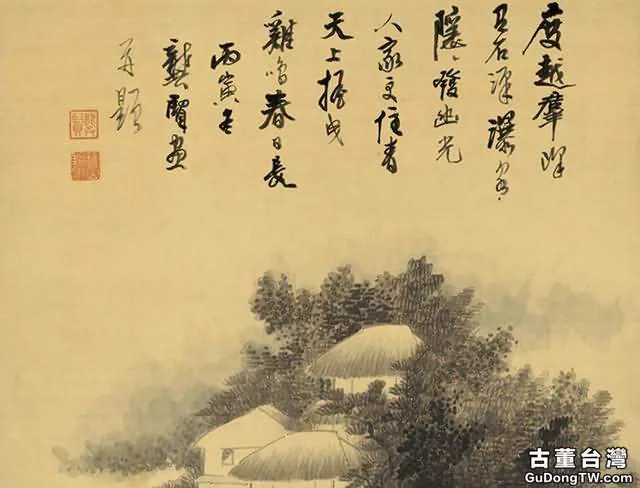 度越群峰
石瀑
隱〻發幽光
人家更住青
天上搖曳
雞鳴春日長
丙寅冬
龔賢畫
并題
古董台灣
GuDongTW.com